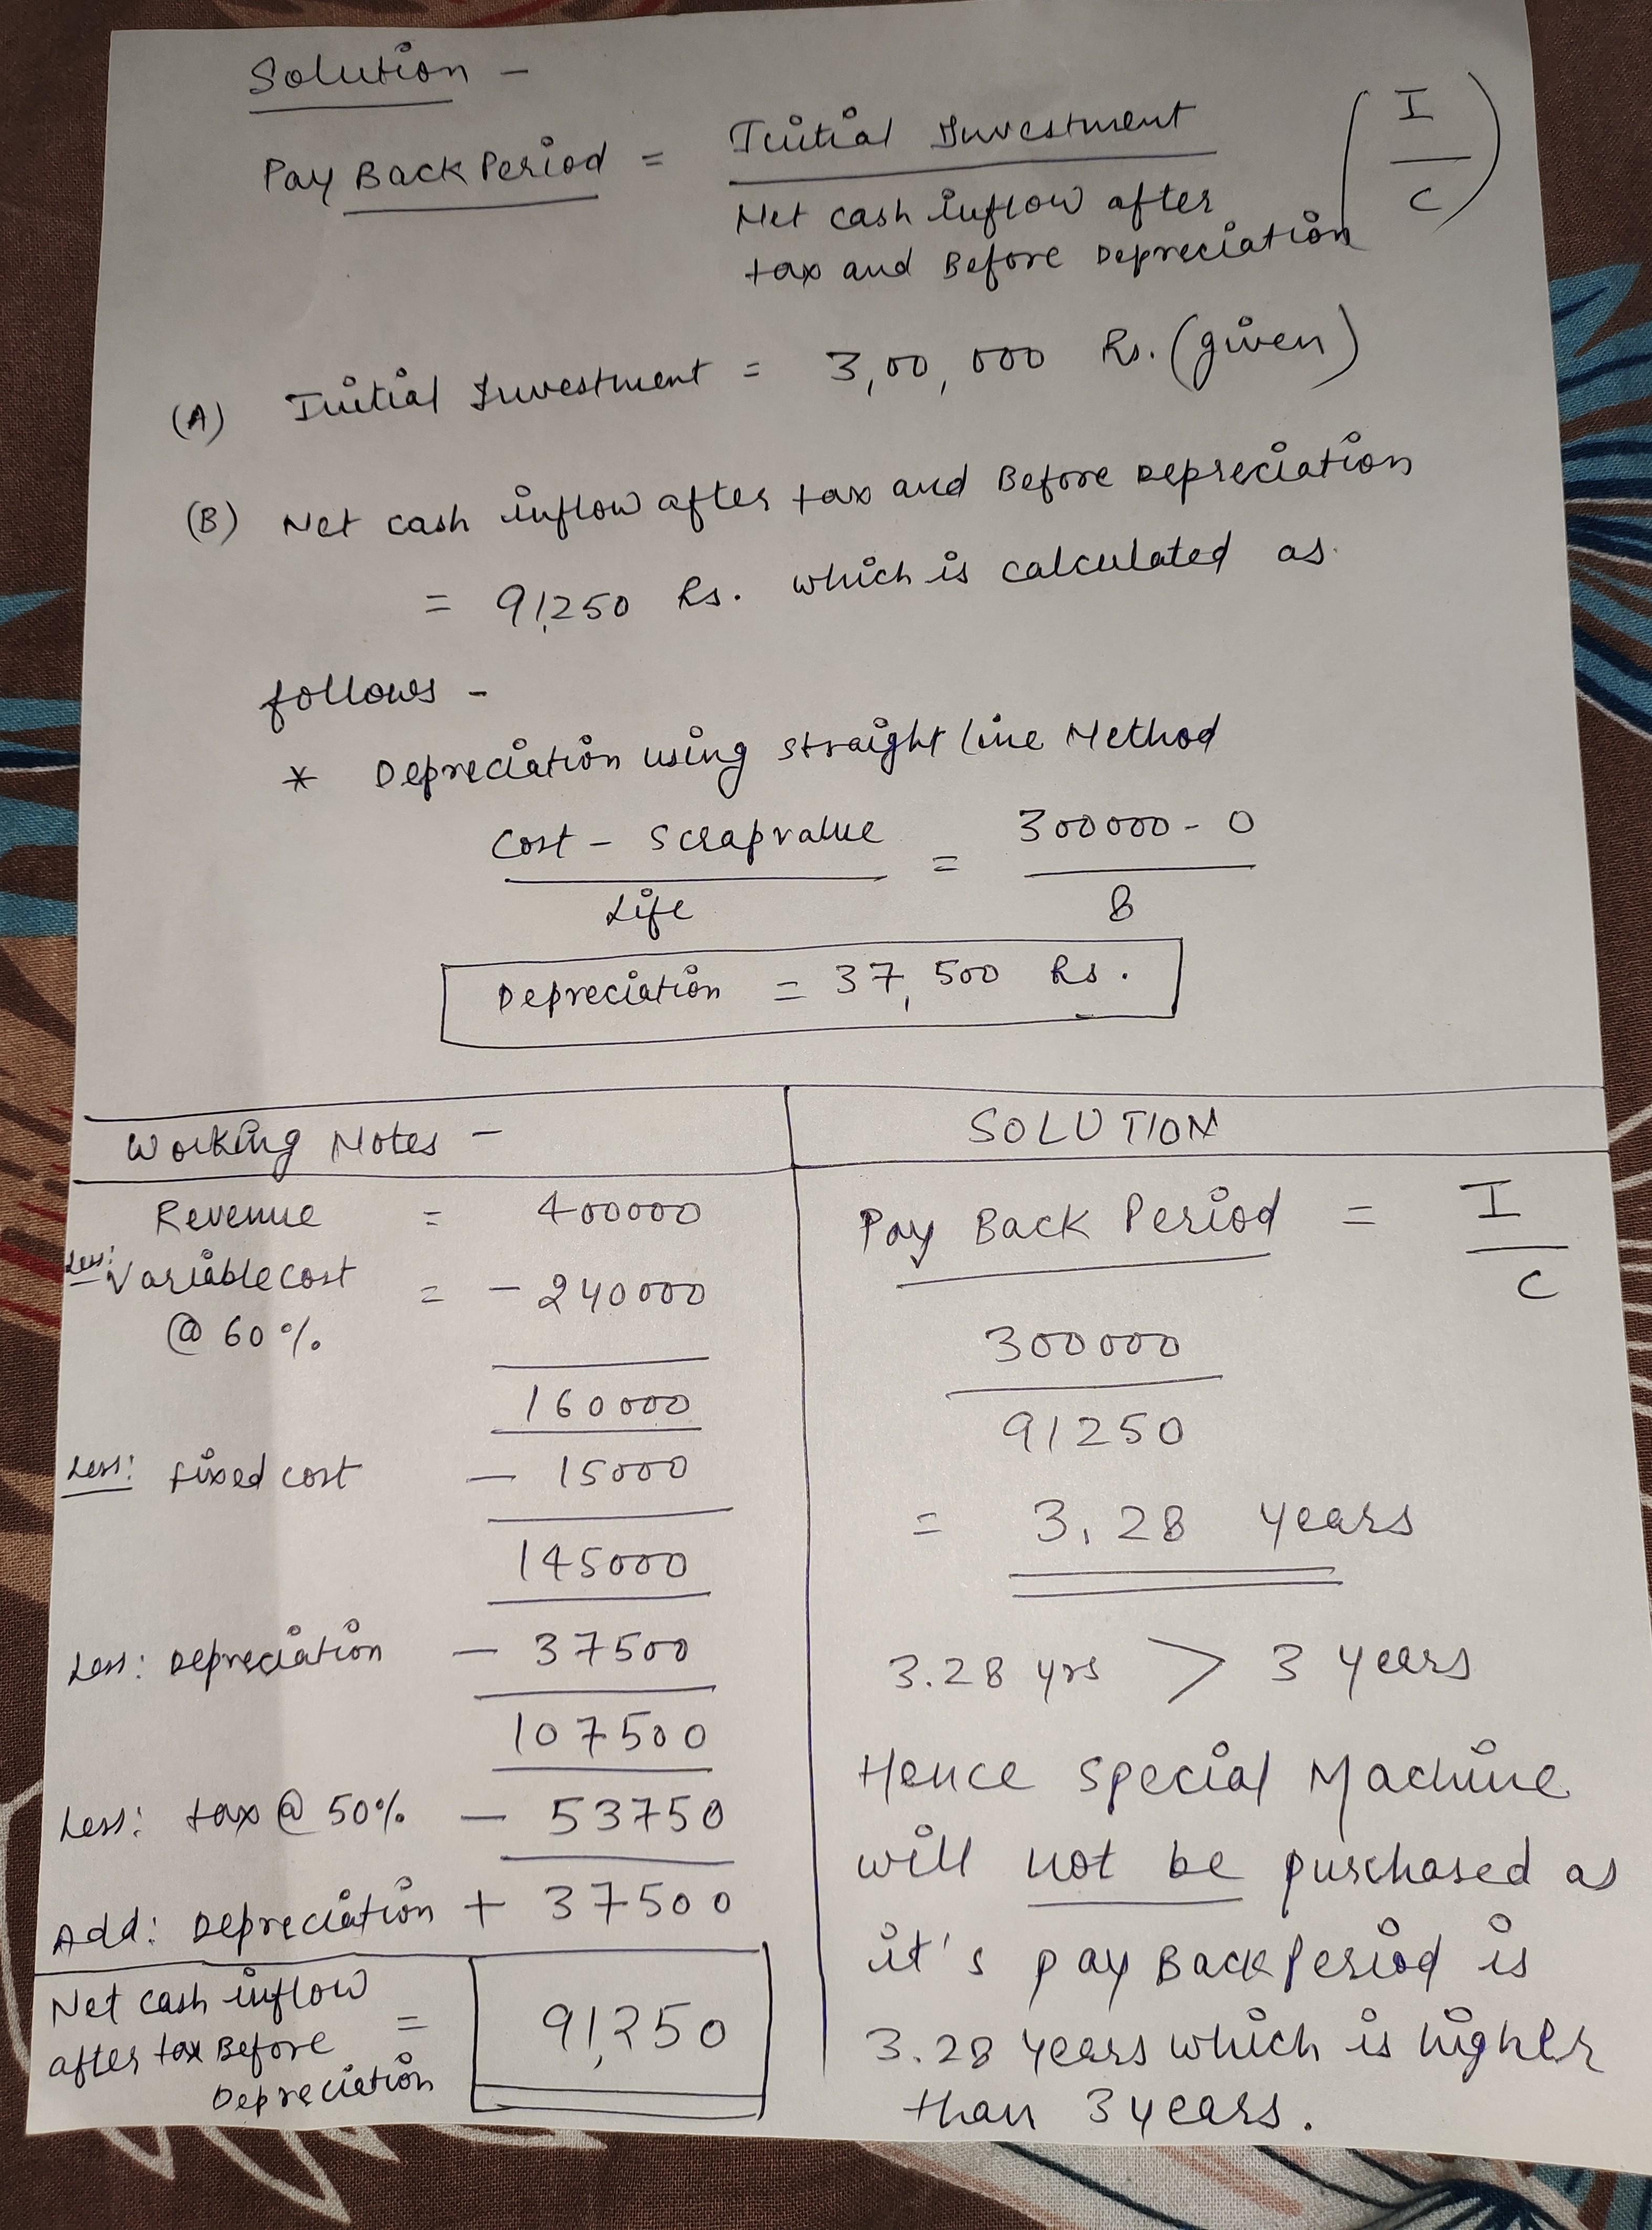 Solution -
Pay Back Period = Initial Investment ( I
Net cash inflow after C )
tax and Before Depreciation
(A) Initial Investment = 3,00,000 Rs. (given)
(B) Net cash inflow after tax and Before Depreciation
= 91,250 Rs. which is calculated as
follows -
* Depreciation using straight line Method
Cost - Scrap value = 300000 - 0
Life 8
Depreciation = 37,500 Rs.
Working Notes -
Revenue = 400000
Less: Variable cost = - 240000
@ 60%
160000
Less: fixed cost - 15000
145000
Less: Depreciation - 37500
107500
Less: tax @ 50% - 53750
Add: Depreciation + 37500
Net cash inflow
after tax Before = 91,250
Depreciation
SOLUTION
Pay Back Period = I
C
300000
91250
= 3.28 years
3.28 yrs > 3 years
Hence special Machine
will not be purchased as
it's pay Back Period is
3.28 years which is higher
than 3 years.